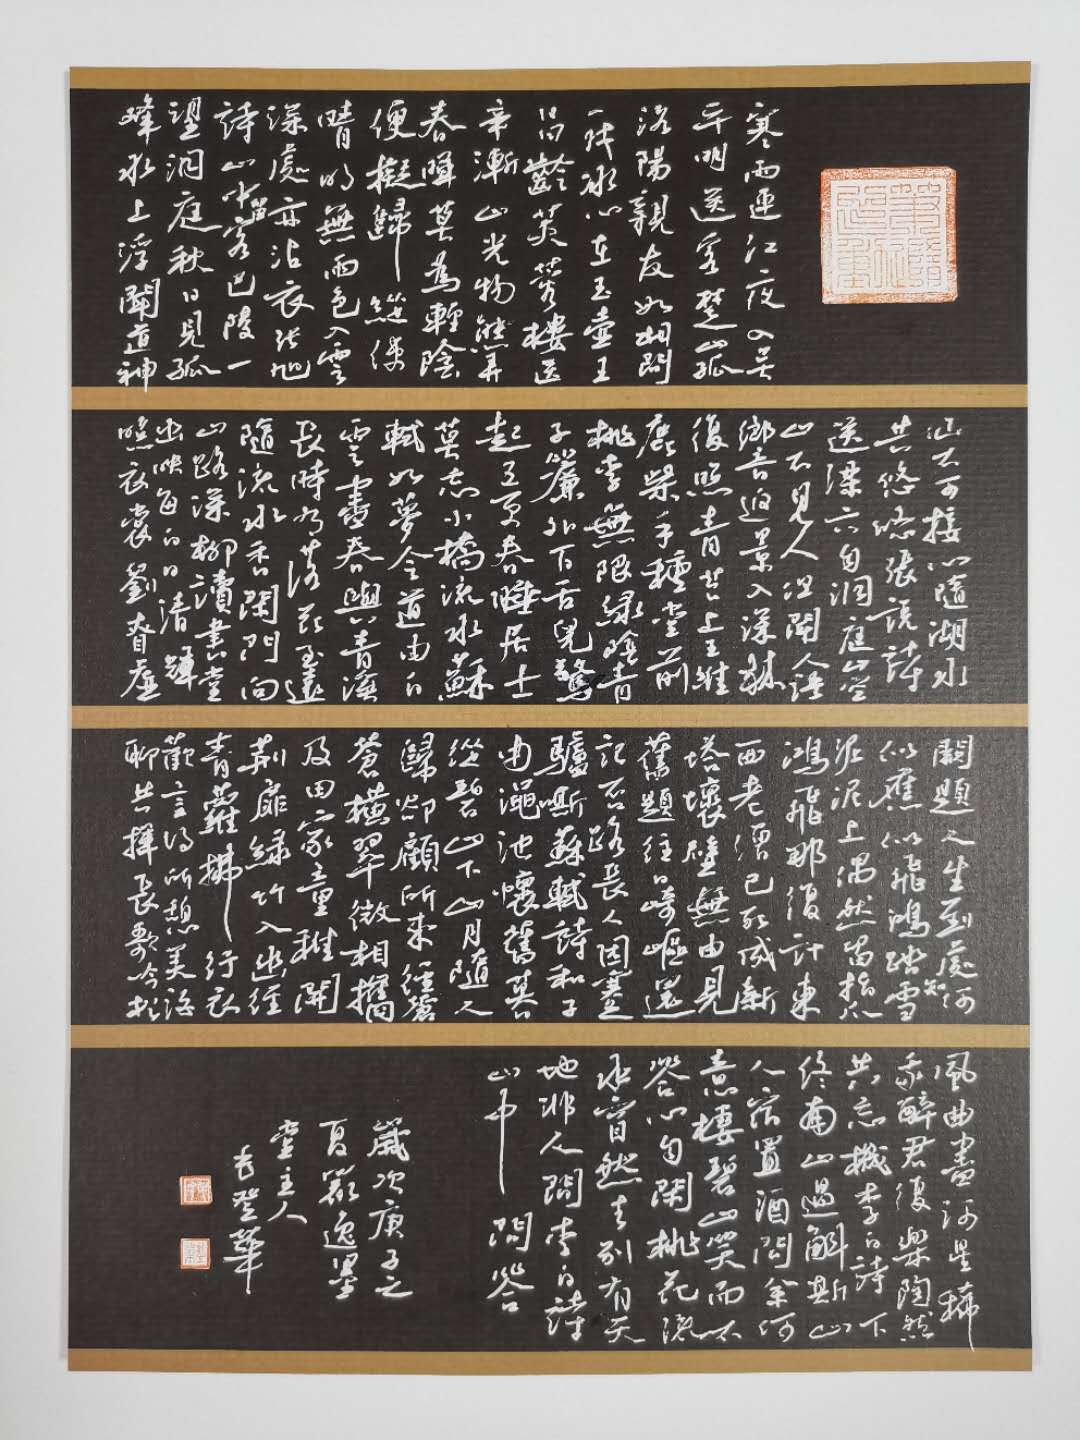 寒雨連江夜入吳
平明送客楚山孤
洛陽親友如相問
一片冰心在玉壺王
昌齡芙蓉樓送
辛漸山光物態弄
春暉莫為輕陰
便擬歸縱使
晴明無雨色入雲
深處亦沾衣張旭
詩山中留客巴陵一
望洞庭秋日見孤
峰水上浮聞道神
仙不可接心隨湖水
共悠悠張說詩
送梁六自洞庭山空
山不見人但聞人語
響返景入深林
復照青苔上王維
鹿柴手種堂前
桃李無限綠陰青
子簾外百舌兒驚
起五更春睡居士
莫忘小橋流水蘇
軾如夢令道由白
雲盡春與青溪
長時有落花至遠
隨流水香閑門向
山路深柳讀書堂
幽映每白日清輝
照衣裳劉眘虛
闕題人生到處知何
似應似飛鴻踏雪
泥泥上偶然留指爪
鴻飛那復計東
西老僧已死成新
塔壞壁無由見
舊題往日崎嶇還
記否路長人困蹇
驢嘶蘇軾詩和子
由澠池懷舊暮
從碧山下山月隨人
歸卻顧所來徑蒼
蒼橫翠微相攜
及田家童稚開
荊扉綠竹入幽徑
青蘿拂行衣
歡言得所憩美酒
聊共揮長歌吟松
風曲盡河星稀
我醉君復樂陶然
共忘機李白詩下
終南山過斛斯山
人宿置酒問余何
意棲碧山笑而不
答心自閑桃花流
水窅然去別有天
地非人間李白詩
山中問答
歲次庚子之
夏逸墨
堂主人
毛登華